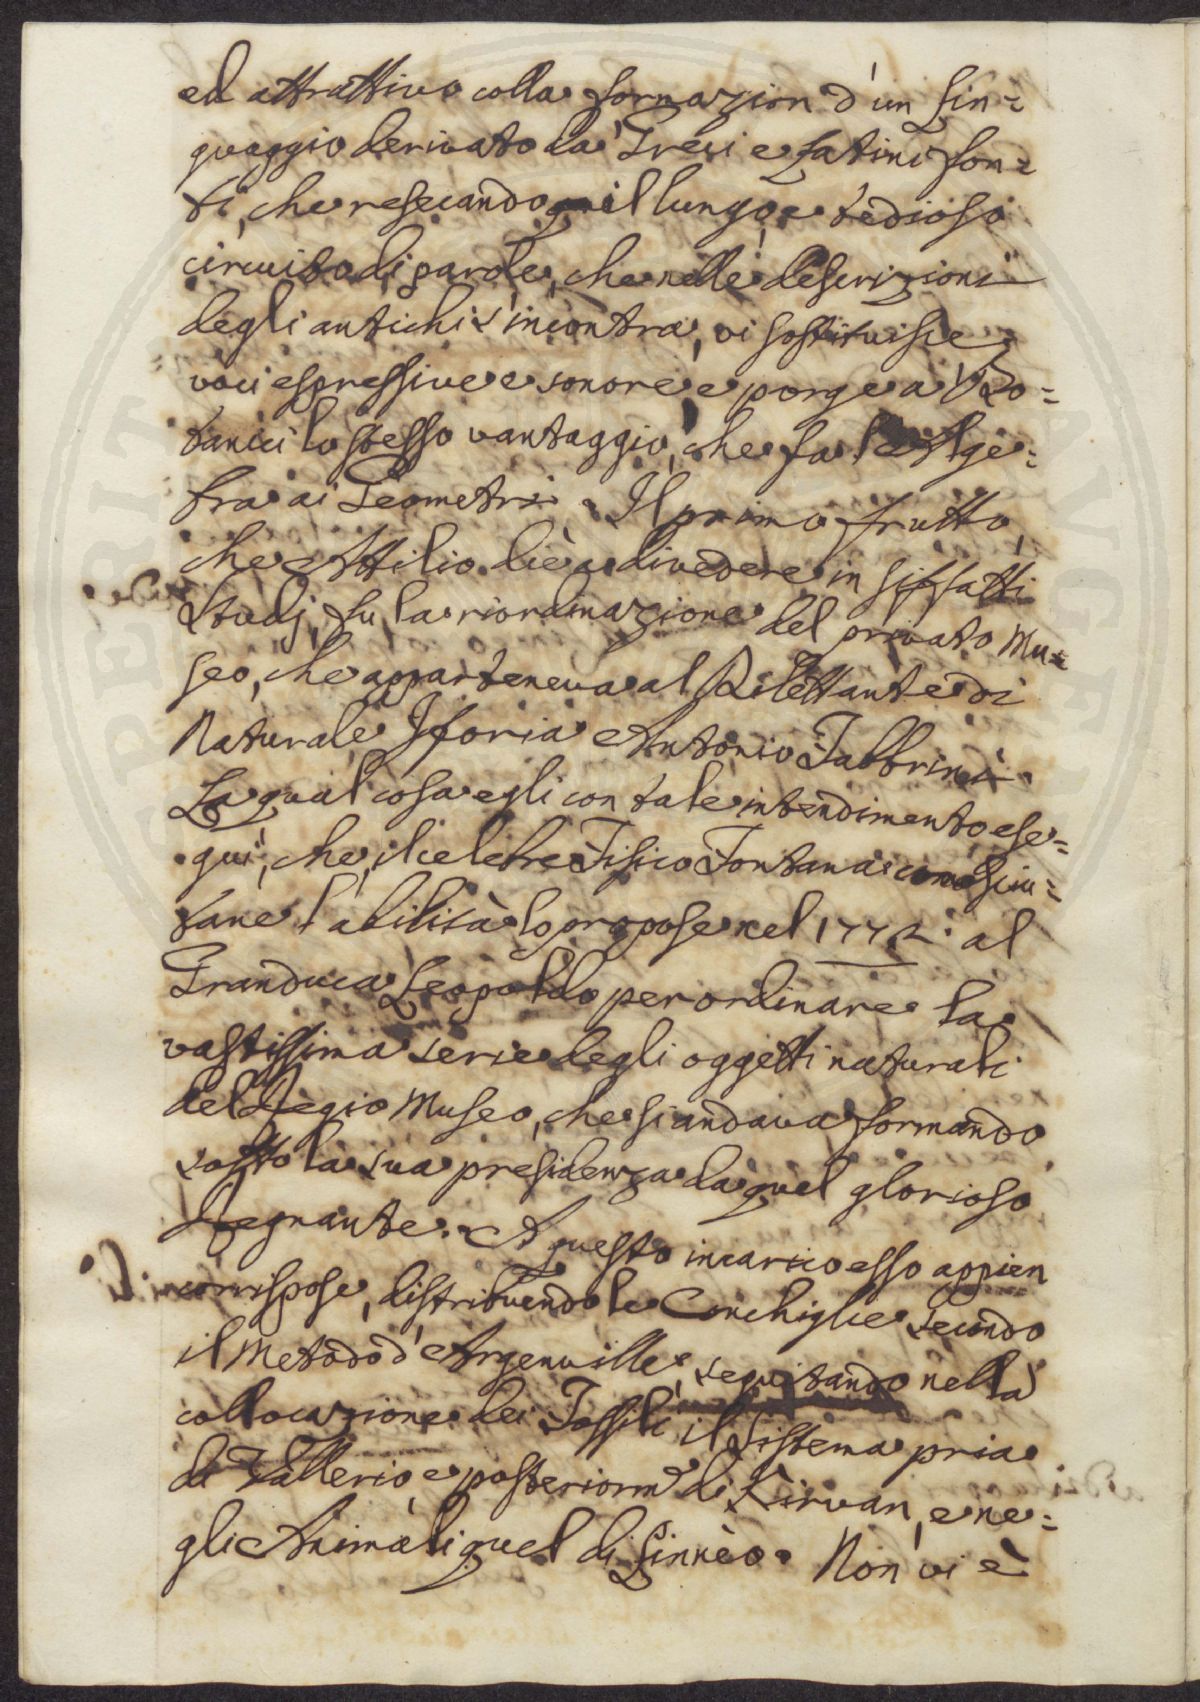 ed attrattivo colla formazion d'un Lin=
guaggio derivato da' Greci e Latini fon=
ti, che resecando il lungo, e tedioso
circuito di parole, che nelle descrizioni
degli antichi s'incontra, vi sostituisce
voci espressive e sonore, e porge a' Bo=
tanici lo stesso vantaggio, che fa l'Alge=
bra ai Geometri. Il primo frutto,
che Attilio diè a divedere in siffatti
Studj, fu la riordinazione del privato Mu=
seo, che apparteneva al Dilettante di
Naturale Istoria Antonio Fabbrini.
La qual cosa egli con tale intendimento ese=
guì, che il celebre Fisico Fontana consciu=
tane l'abilità lo propose nel 1772. al
Granduca Leopoldo per ordinare la
vastissima serie degli oggetti naturali
del Regio Museo, che si andava formando
sotto la sua presidenza da quel glorioso
Regnante. A questo incarico esso appien
corrispose, distribuendo le Conchiglie secondo
il Metodo d'Argenville, seguitando nella
collocazione dei Fossili il Sistema pria
di Vallerio, e posteriorm.e di Kirvan, e ne=
gli Animali quel di Linnèo. Non vi è